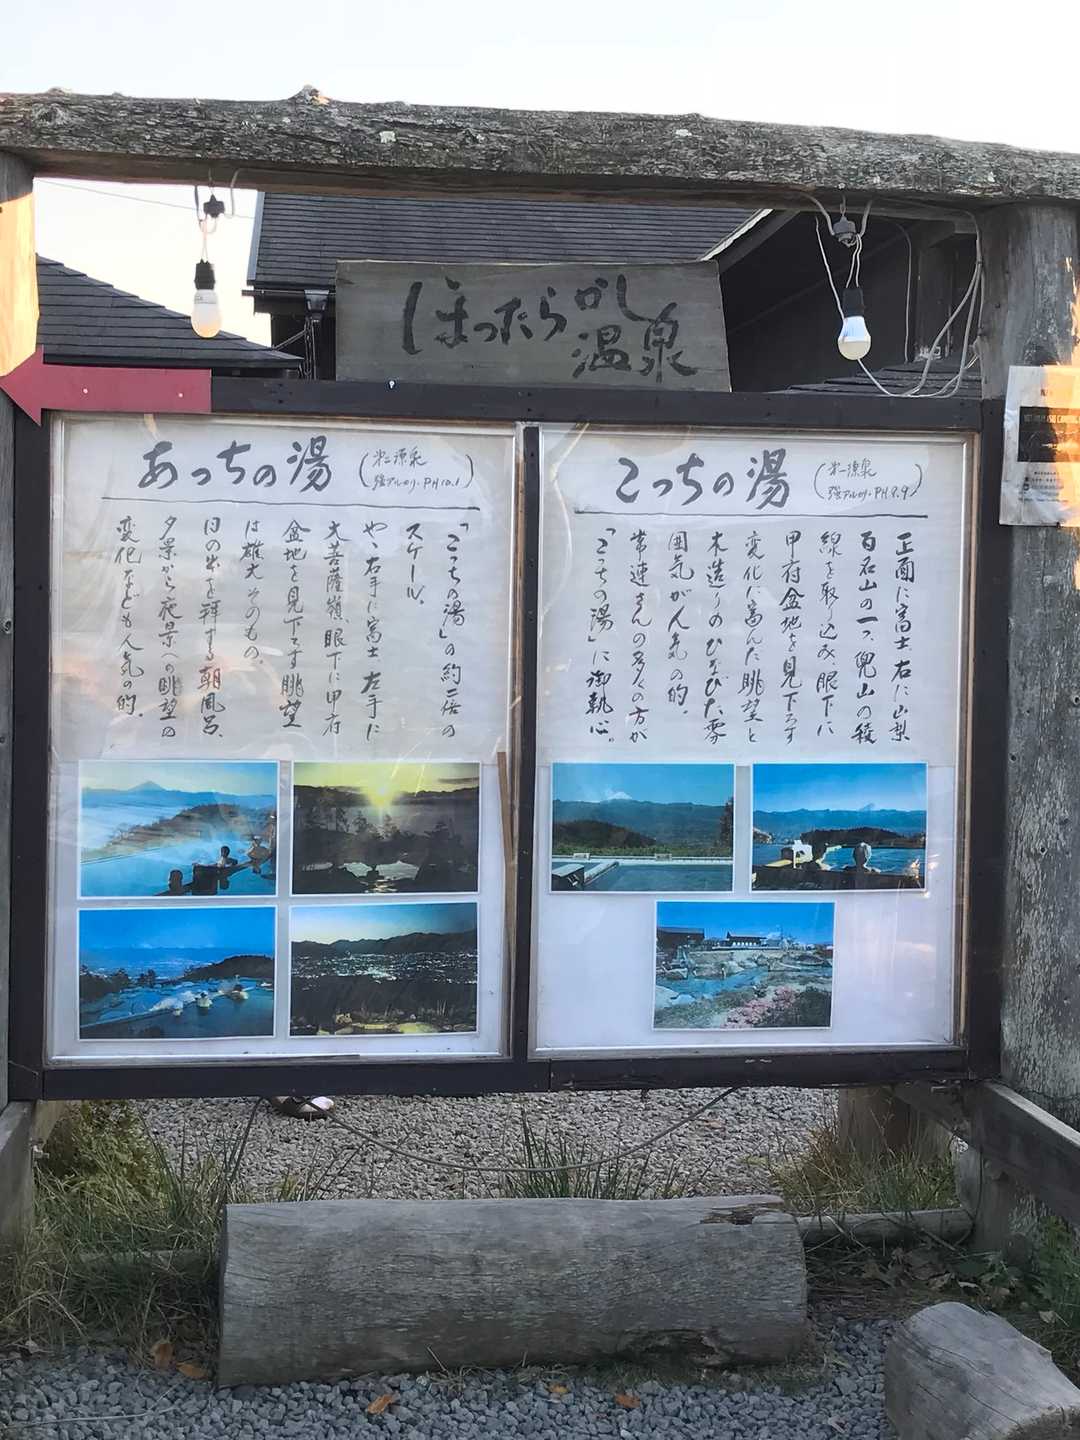 ほったらかし
温泉
あっちの湯
(第二源泉
強アルカリ・PH10.1)
「こっちの湯」の約二倍の
スケール。
やゝ右手に富士、左手に
大菩薩嶺、眼下に甲府
盆地を見下す眺望
は雄大そのもの。
日の出を拝する朝風呂、
夕景から夜景への眺望の
変化なども人気の的。
こっちの湯
(第一源泉
強アルカリ・PH9.9)
正面に富士、右に山梨
百名山の一つ、兜山の稜
線を取り込み、眼下に
甲府盆地を見下ろす
変化に富んだ眺望と
木造りのひなびた雰
囲気が人気の的。
常連さんの多くの方が
「こっちの湯」に御執心。